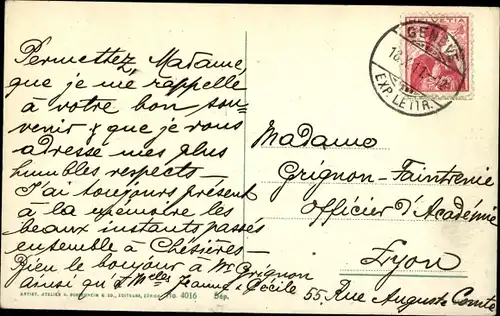 Permettez, Madame,
que je me rappelle
à votre bon sou-
venir & que je vous
adresse mes plus
humbles respects —
J'ai toujours présent
à la mémoire les
beaux instants passés
ensemble à Chésières —
Bien le bonjour à Mr Grignon
ainsi qu'à Mlles Jeanne & Cécile
HELVETIA
GENÈVE
EXP. LETTR.
Madame
Grignon-Faintrenie
Officier d'Académie
Lyon
55 Rue Auguste Comte
No. 4016 Dép.